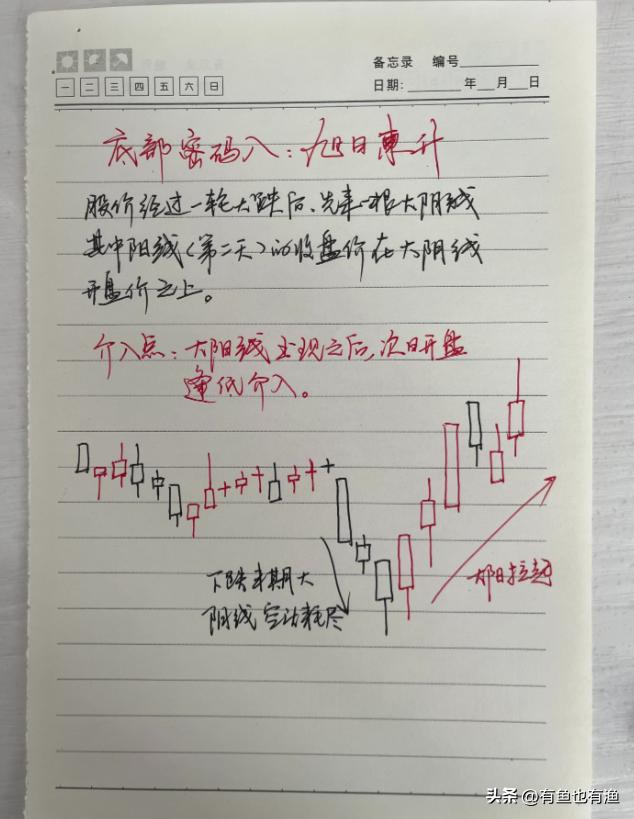 备忘录 编号
一 二 三 四 五 六 日
日期: 年 月 日
底部密码八:旭日東升
股价经过一轮大跌后、先来一根大阴线
其中阳线(第二天)的收盘价在大阴线
开盘价之上。
介入点:大阳线出现之后,次日开盘
逢低介入。
下跌末期大
阴线 空动耗尽
拉起
头条 @有鱼也有渔